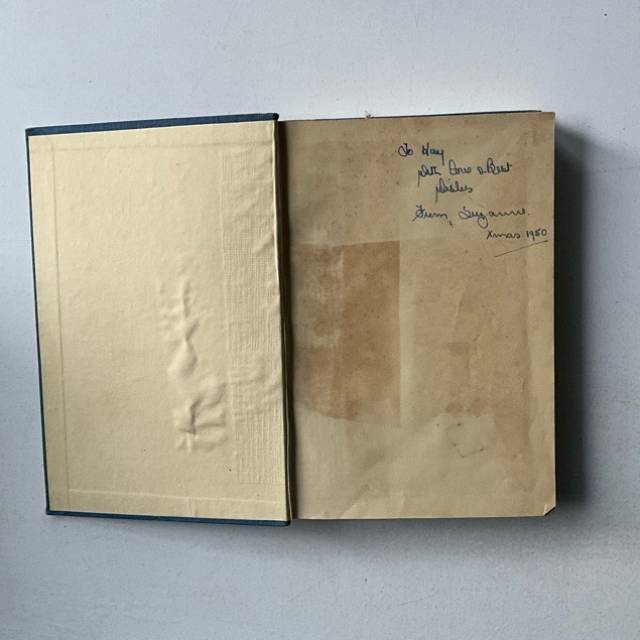 To Kay
With Love & Best
Wishes
From, Suzanne.
Xmas 1980